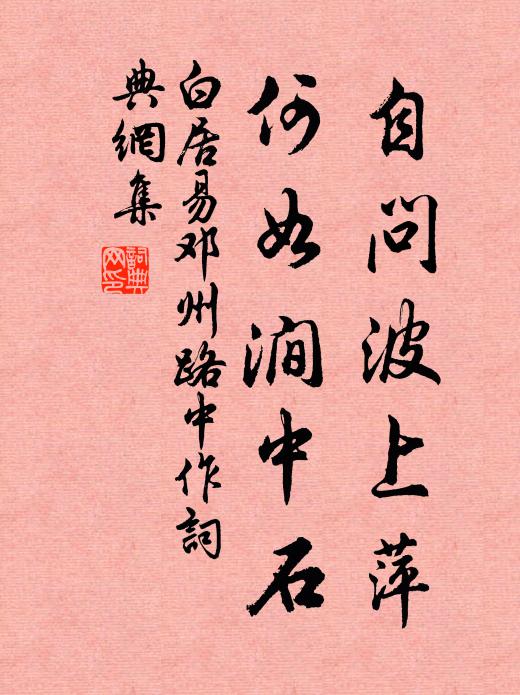 自问波上萍
何如涧中石
白居易邓州路中作詞
典網集
詞典
网印